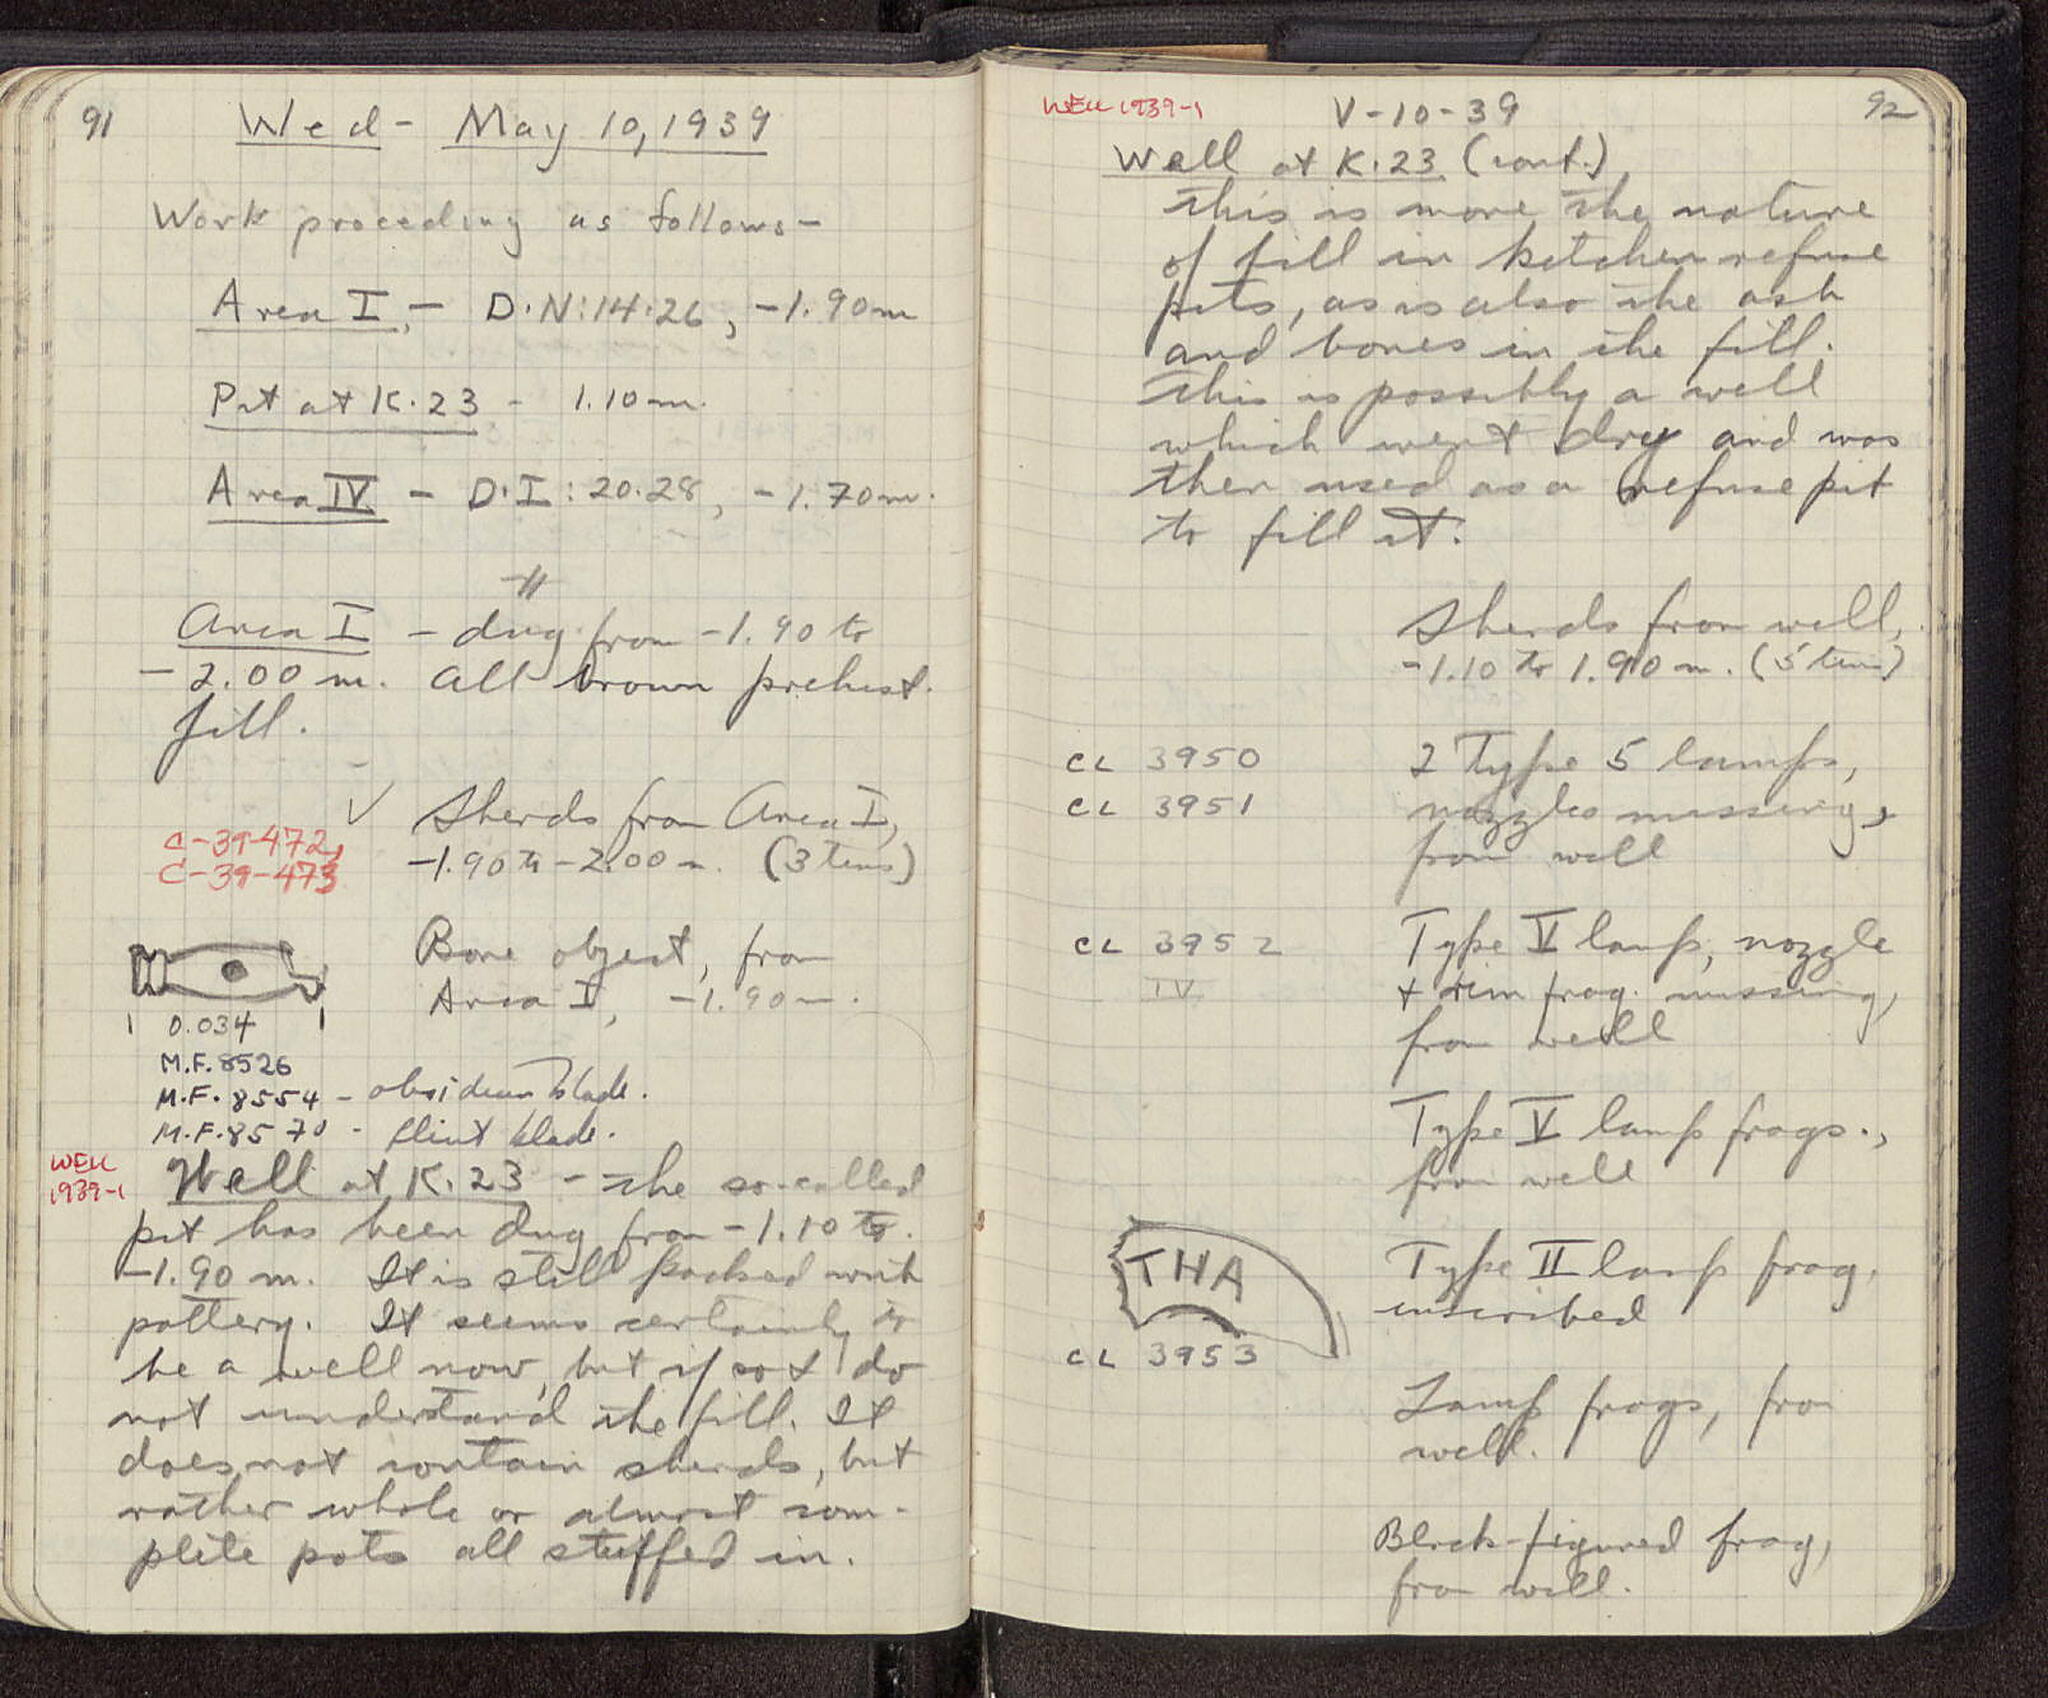 91
Wed - May 10, 1939
Work proceeding as follows -
Area I, - D·N:14·26, -1.90m
Pit at K·23 - 1.10m.
Area IV - D·I:20·28, -1.70m.
Area I - dug from -1.90 to
-2.00 m. All brown prehist.
fill.
C-39-472,
C-39-473
Sherds from Area I,
-1.90 to -2.00 m. (3 tins)
Bone object, from
Area I, -1.90 m.
0.034
M.F. 8526
M.F. 8554 - obsidian blade.
M.F. 8570 - flint blade.
WELL
1939-1
Well at K.23 - The so-called
pit has been dug from -1.10 to
-1.90 m. It is still packed with
pottery. It seems certainly to
be a well now, but if so I do
not understand the fill. It
does not contain sherds, but
rather whole or almost com-
plete pots all stuffed in.
WELL 1939-1
V-10-39
92
Well at K.23 (cont.)
This is more the nature
of fill in kitchen refuse
pits, as is also the ash
and bones in the fill.
This is possibly a well
which went dry and was
then used as a refuse pit
to fill it.
Sherds from well,
-1.10 to 1.90 m. (5 tins)
CL 3950
CL 3951
2 Type 5 lamps,
nozzles missing,
from well
CL 3952
IV
Type V lamp, nozzle
+ rim frag. missing,
from well
Type V lamp frags.,
from well
THA
CL 3953
Type II lamp frag,
inscribed
Lamp frags, from
well.
Black-figured frag,
from well.